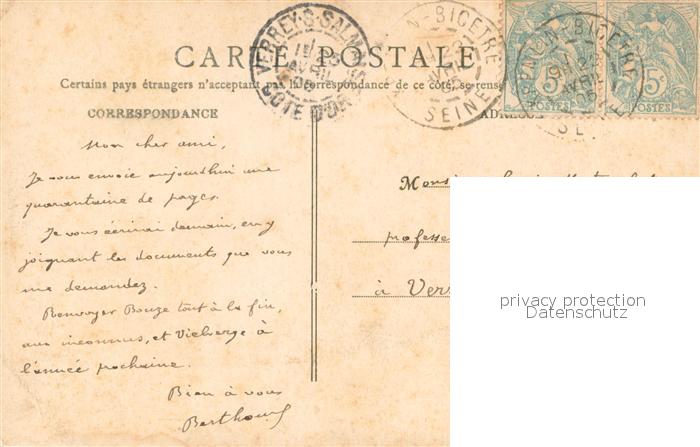 CARTE POSTALE
Certains pays étrangers n'acceptant pas la correspondance de ce côté, se rens
CORRESPONDANCE
ADRESSE
VERREY-S-SALM
AVRIL
COTE D'OR
N-BICETRE
SEINE
LIN-BICETRE
AVRIL
SE
5c
POSTES
5c
POSTES
Mon cher ami,
Je vous envoie aujourd'hui une
quarantaine de pages.
Je vous écrirai demain, en y
joignant les documents que vous
me demandez.
Renvoyer Bouze tout à la fin,
aux inconnus, et Vielverge à
l'année prochaine.
Bien à vous
Berthoud
Monsi
professe
à Verr
privacy protection
Datenschutz